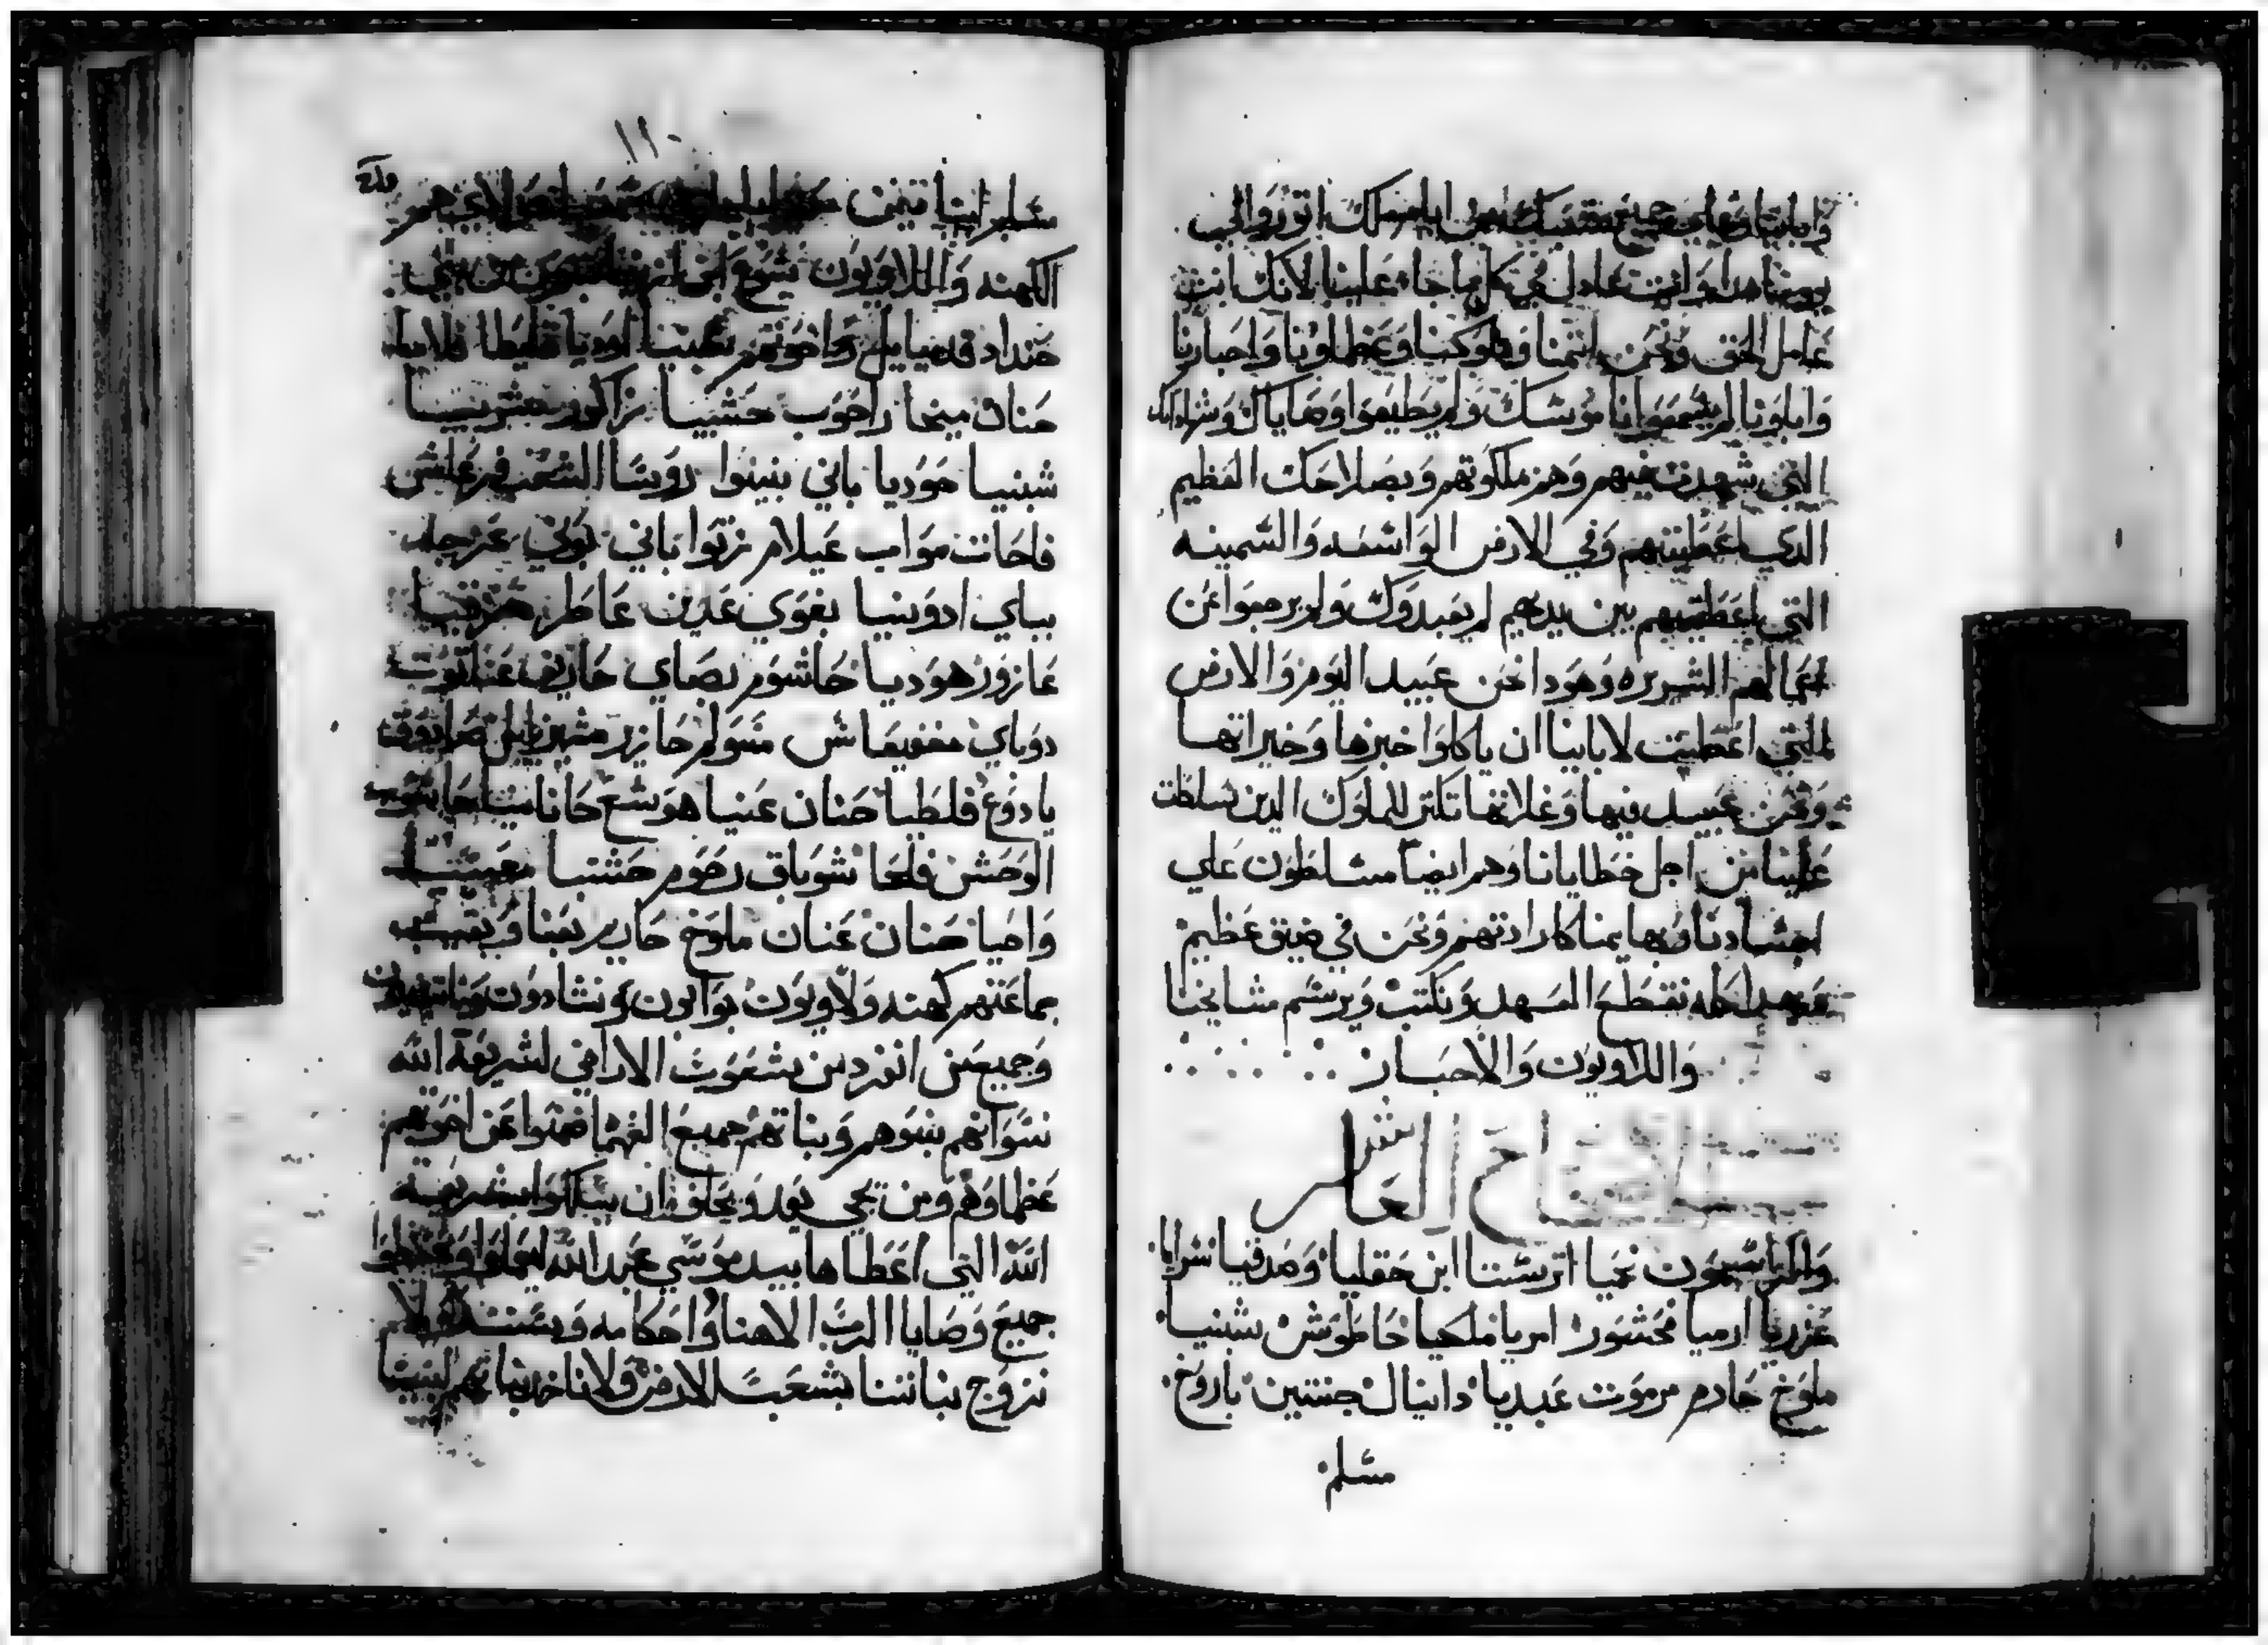 وابانا وعلي جميع شعبك من ايام ملك اتور والي
يومنا هدا وانت عادل في كل ما جاء علينا لانك انت
عامل الحق ونحن اتمنا وملوكنا وعظماونا واحبارنا
واباونا لم يسمعوا ناموسك ولم يطيعوا وصاياك وشهاداتك
التي شهدت فيهم وهم في ملكوتهم وبصلاحك العظيم
الدي اعطيتهم وفي الارض الواسعه والسمينه
التي اعطيتهم بين يديهم لم يعبدوك ولم يرجعوا عن
اعمالهم الشريره وهودا نحن عبيد اليوم والارض
التي اعطيت لابائنا ان ياكلوا خبزها وخيراتها
ونحن عبيد فيها وغلاتها تكتر للملوك الدين سلطت
علينا من اجل خطايانا وهم ايضا مسلطون علي
اجسادنا وبهايمنا كارادتهم ونحن في ضيق عظيم
وبهدا كله نقطع العهد ونكتب ويرسم مشايخنا
واللاويون والاحبار
الاصحاح العاشر
والمرتسمون نحميا اترستا ابن حقليا وصدقيا سرايا
عزريا ارميا فحشور امريا ملكيا حاطوش شبنيا
ملوخ حارم مرموت عبديا دانيال جنتين باروخ
مسلم
١١٠
مسلم ابيا
الكهنه واللاويون يشوع ابن من بني
حنداد قدميايل واخوتهم شبنيا اوديا قليطا فلايا
حنان ميخا راحوب حشبيا زاكور سربيا
شبنيا هوديا باني بنينوا روسا الشعب فرعاش
فاحات مواب عيلام زتوا باني بوني عزجاد
بباي ادونيا بغوي عدين عاطر حزقيا
عازور هوديا حاشوم بصاي حاريف عناتوت
دوباي مغفيعاش مسولم حازير مشيزابل صادوق
يادوع فلطيا حنان عنيا هوشع حانانيا حاشوب
الوحش فلحا شوباق رحوم حشبنا معسيا
واحيا حنان عنان ملوخ حاريم بعنا وبقيت
جماعتهم كهنه ولاويون بوابون ونشادون
وجميع من انفرد من شعوب الاراضي لشريعة الله
نسوانهم بنوهم وبناتهم جميع الفهما ضمنوا عن اخوتهم
عظماوهم ومن يجي يعد ويحلف ان يسلكوا بشريعة
الله التي اعطاها بيد موسي عبد الله ليعملوا ويحفظوا
جميع وصايا الرب الاهنا واحكامه وسننه ولا
نزوج بناتنا بشعب الارض ولا ناخد بناتهم لبنينا